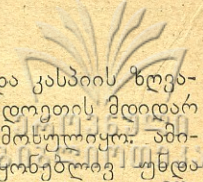 და კასპიის ზღვა-
დოეთის მდიდარ
მოსულიყო. ამი-
ყონებლივ უნდა